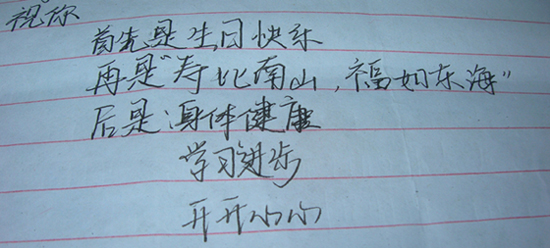 祝你
首先是生日快乐
再是“寿比南山，福如东海”
后是身体健康
学习进步
开开心心